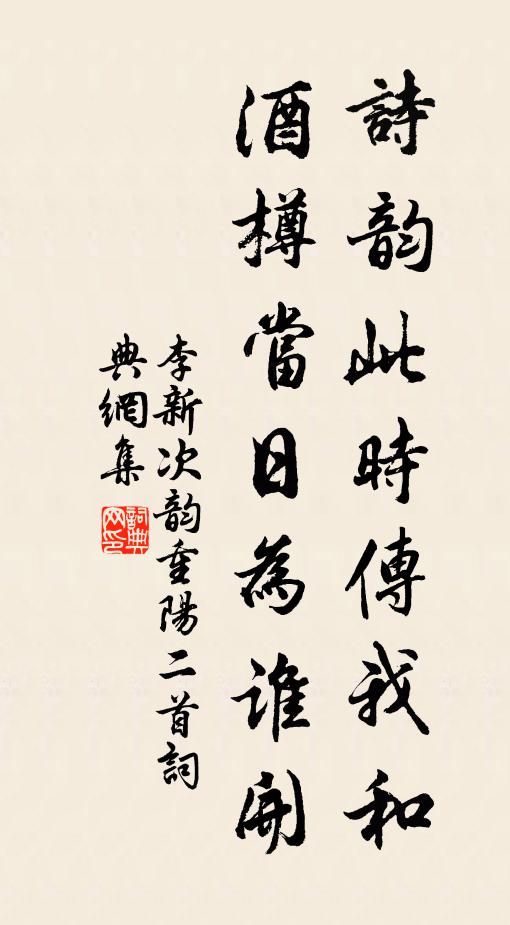 詩韵此時傳我和
酒樽當日為誰開
李新次韵重陽二首詞
典網集
詞典網印